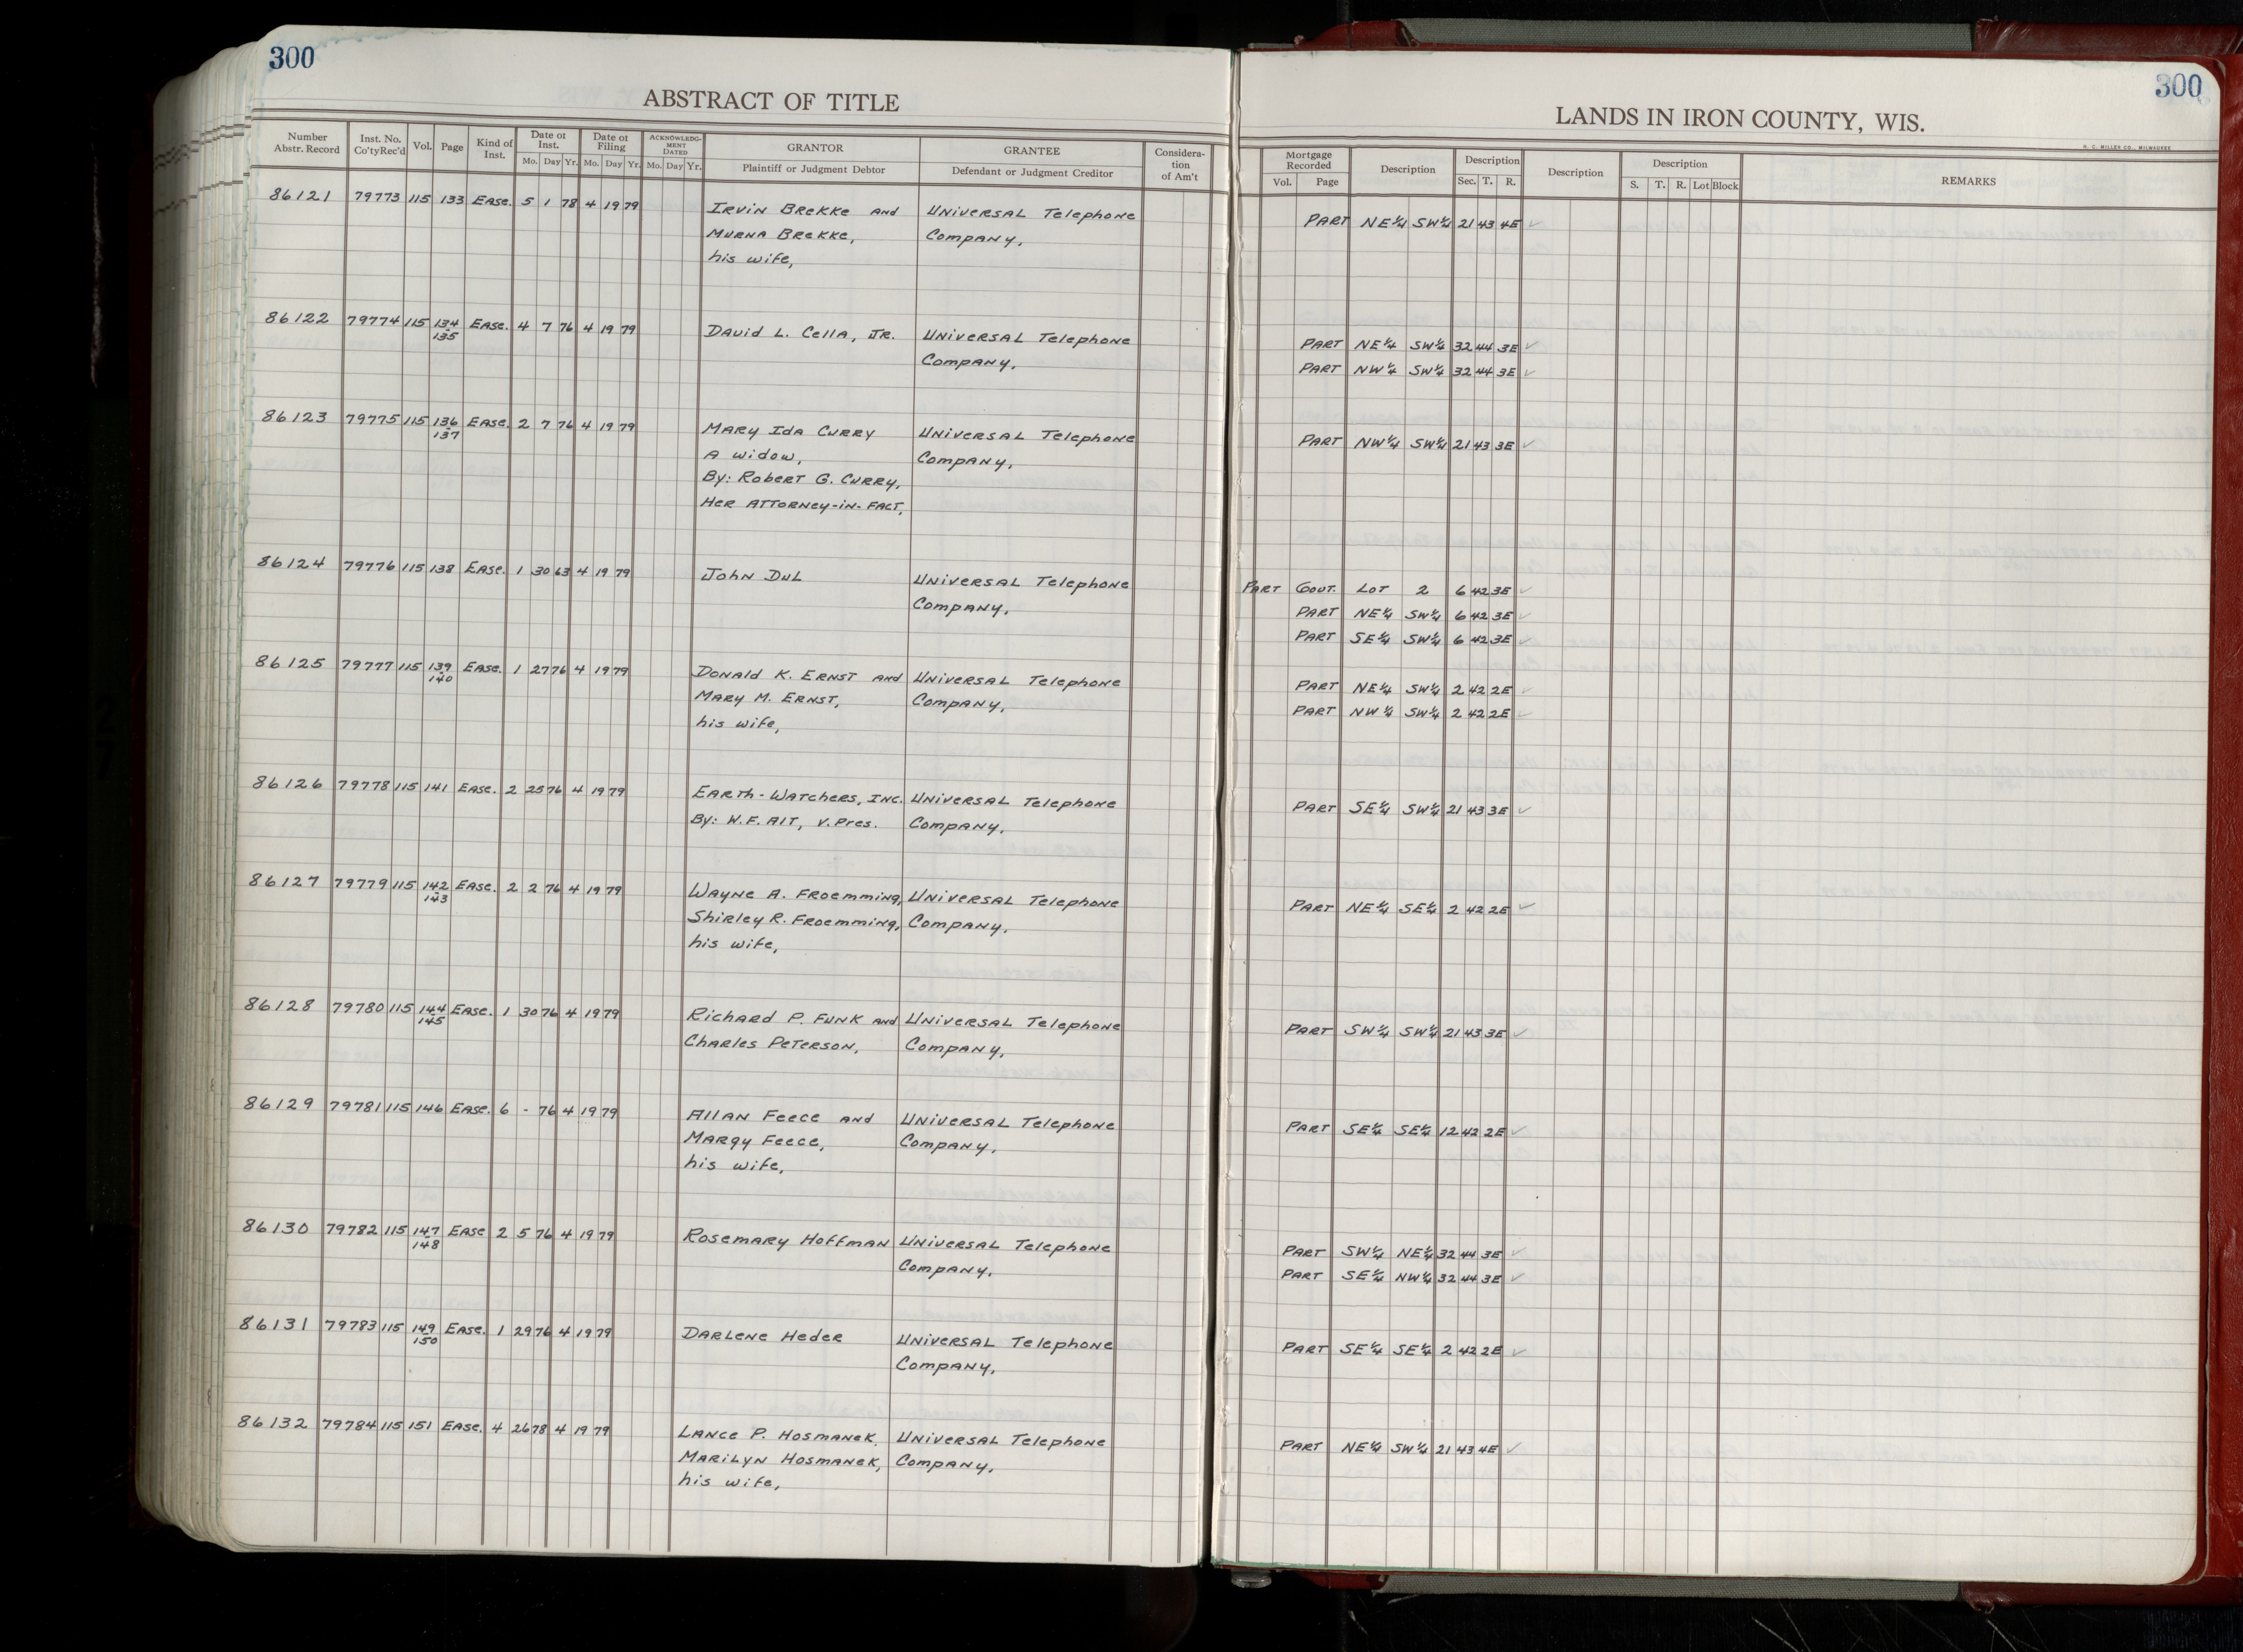 300
ABSTRACT OF TITLE
Number Abstr. Record Inst. No. Co'ty Rec'd Vol. Page Kind of Inst. Date of Inst. Mo. Day Yr. Date of Filing Mo. Day Yr. ACKNOWLEDGMENT DATED Mo. Day Yr. GRANTOR Plaintiff or Judgment Debtor GRANTEE Defendant or Judgment Creditor Consideration of Am't
86121 79773 115 133 Ease. 5 1 78 4 19 79 Irvin Brekke and Universal Telephone
Murna Brekke, Company,
his wife,
86122 79774 115 134-135 Ease. 4 7 76 4 19 79 David L. Cella, Jr. Universal Telephone
Company,
86123 79775 115 136-137 Ease. 2 7 76 4 19 79 Mary Ida Curry Universal Telephone
A widow, Company,
By: Robert G. Curry,
Her Attorney-in-Fact,
86124 79776 115 138 Ease. 1 30 63 4 19 79 John Dul Universal Telephone
Company,
86125 79777 115 139-140 Ease. 1 27 76 4 19 79 Donald K. Ernst and Universal Telephone
Mary M. Ernst, Company,
his wife,
86126 79778 115 141 Ease. 2 25 76 4 19 79 Earth-Watchers, Inc. Universal Telephone
By: W.F. Alt, V. Pres. Company,
86127 79779 115 142-143 Ease. 2 2 76 4 19 79 Wayne A. Froemming, Universal Telephone
Shirley R. Froemming, Company,
his wife,
86128 79780 115 144-145 Ease. 1 30 76 4 19 79 Richard P. Funk and Universal Telephone
Charles Peterson, Company,
86129 79781 115 146 Ease. 6 - 76 4 19 79 Allan Feece and Universal Telephone
Margy Feece, Company,
his wife,
86130 79782 115 147-148 Ease 2 5 76 4 19 79 Rosemary Hoffman Universal Telephone
Company,
86131 79783 115 149-150 Ease. 1 29 76 4 19 79 Darlene Heder Universal Telephone
Company,
86132 79784 115 151 Ease. 4 26 78 4 19 79 Lance P. Hosmanek, Universal Telephone
Marilyn Hosmanek, Company,
his wife,
300
LANDS IN IRON COUNTY, WIS.
H. C. MILLER CO., MILWAUKEE
Mortgage Recorded Vol. Page Description Description Sec. T. R. Description Description S. T. R. Lot Block REMARKS
Part NE¼ SW¼ 21 43 4E ✓
Part NE¼ SW¼ 32 44 3E ✓
Part NW¼ SW¼ 32 44 3E ✓
Part NW¼ SW¼ 21 43 3E ✓
Part Gout. Lot 2 6 42 3E ✓
Part NE¼ SW¼ 6 42 3E ✓
Part SE¼ SW¼ 6 42 3E ✓
Part NE¼ SW¼ 2 42 2E ✓
Part NW¼ SW¼ 2 42 2E ✓
Part SE¼ SW¼ 21 43 3E ✓
Part NE¼ SE¼ 2 42 2E ✓
Part SW¼ SW¼ 21 43 3E ✓
Part SE¼ SE¼ 12 42 2E ✓
Part SW¼ NE¼ 32 44 3E ✓
Part SE¼ NW¼ 32 44 3E ✓
Part SE¼ SE¼ 2 42 2E ✓
Part NE¼ SW¼ 21 43 4E ✓